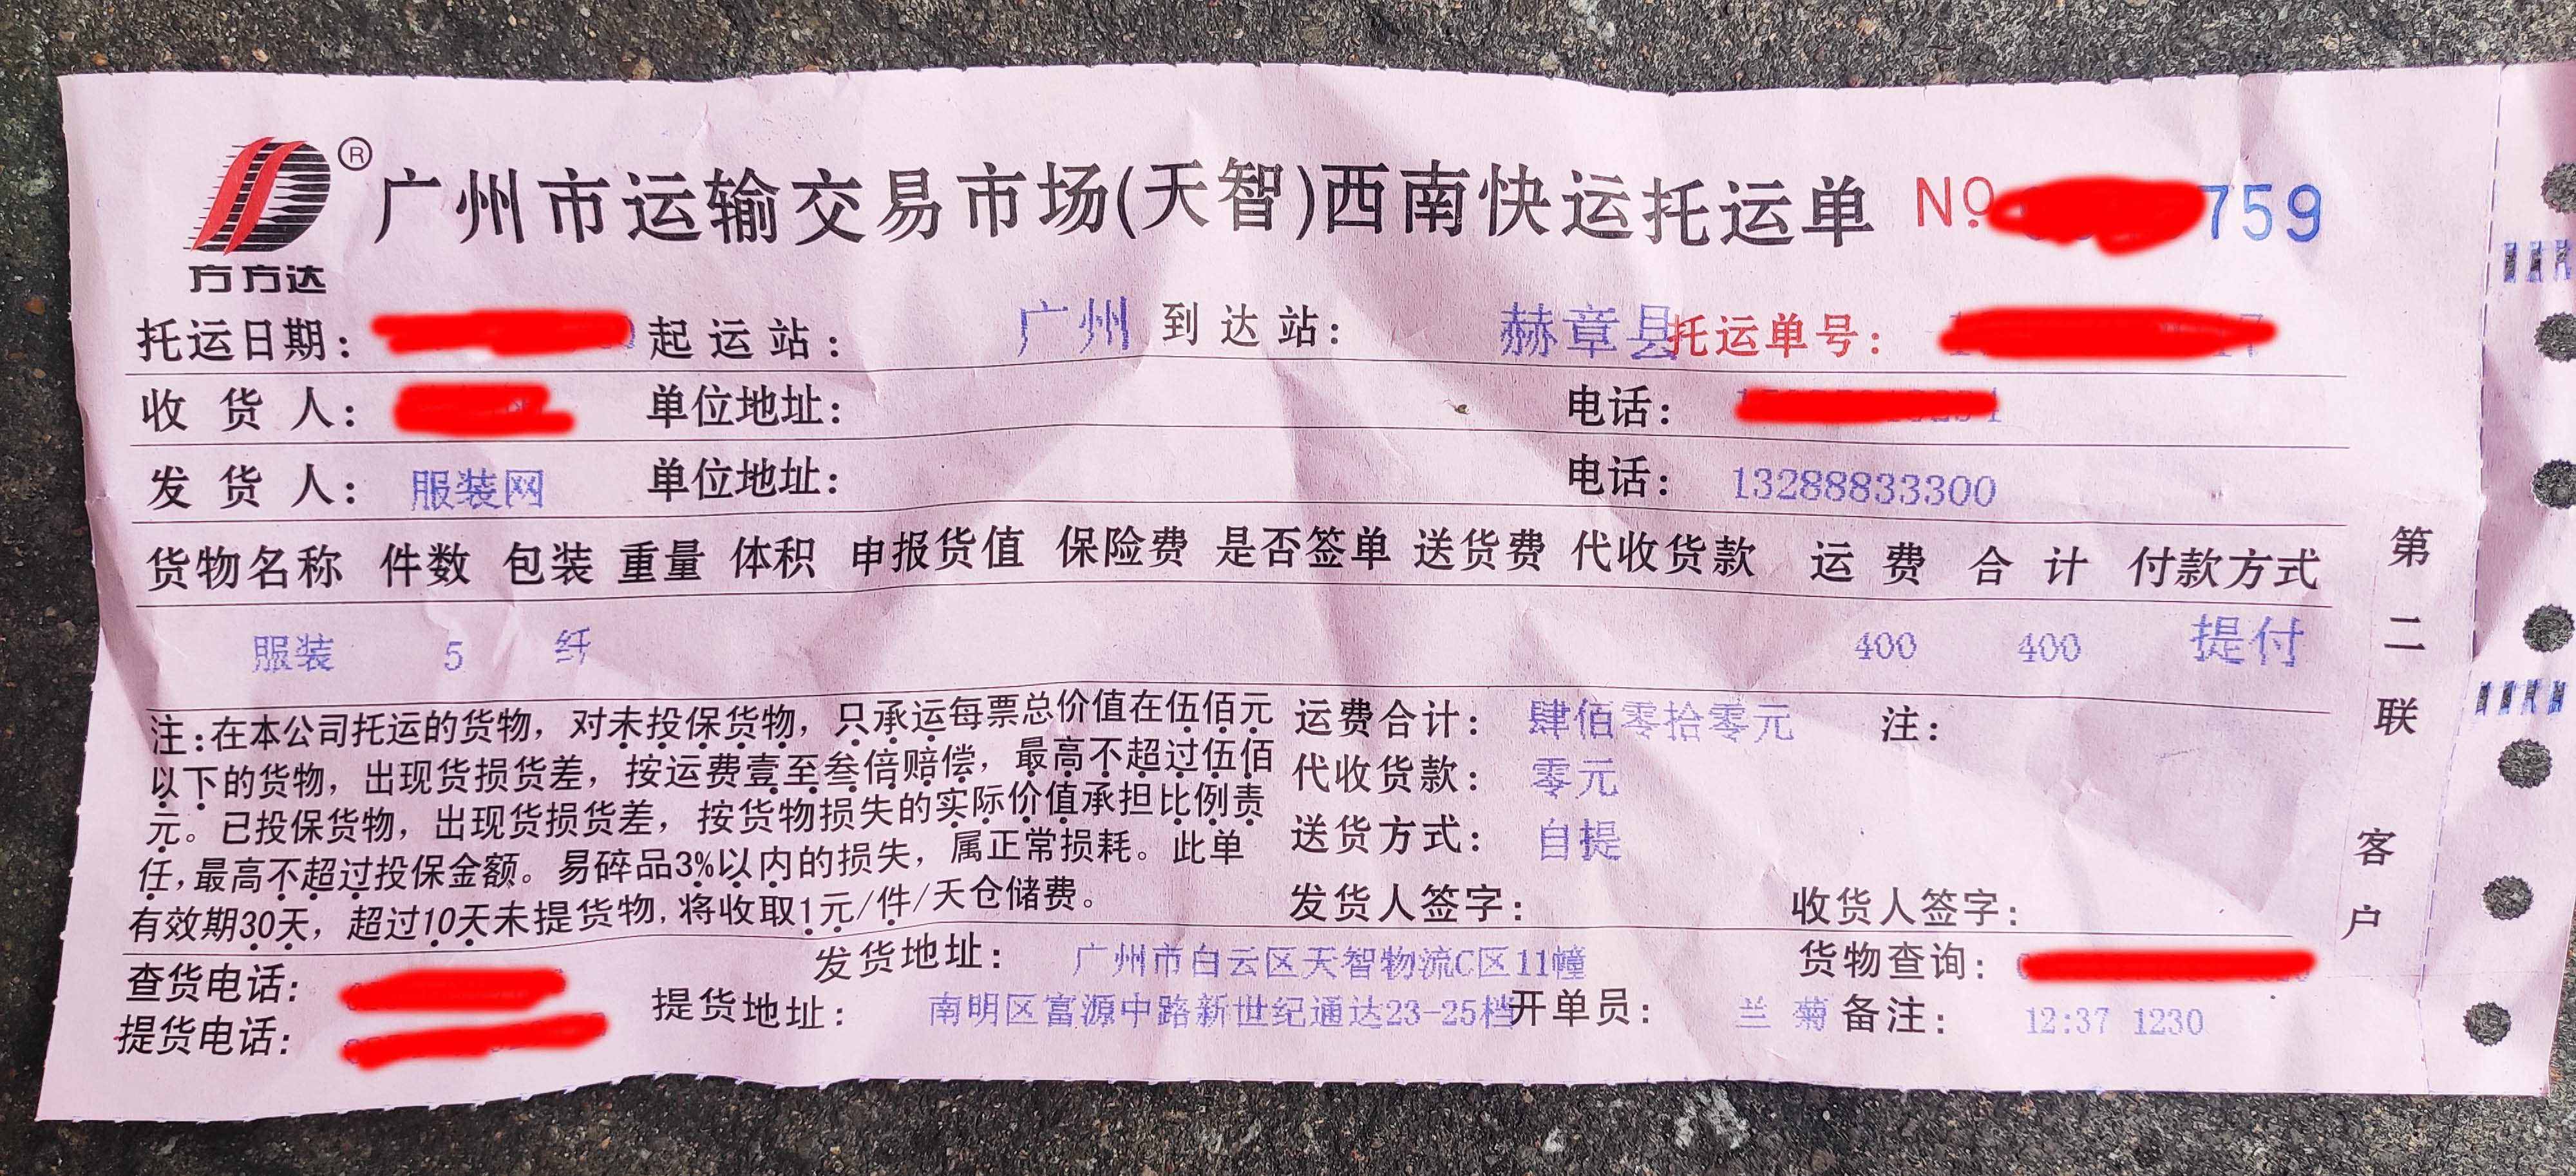 ® 广州市运输交易市场(天智)西南快运托运单 No 759
方方达
托运日期: 起运站: 广州 到达站: 赫章县 托运单号: 17
收货人: 单位地址: 电话:
发货人: 服装网 单位地址: 电话: 13288833300
货物名称 件数 包装 重量 体积 申报货值 保险费 是否签单 送货费 代收货款 运费 合计 付款方式
服装 5 纤 400 400 提付
注:在本公司托运的货物，对未投保货物，只承运每票总价值在伍佰元
以下的货物，出现货损货差，按运费壹至叁倍赔偿，最高不超过伍佰
元。已投保货物，出现货损货差，按货物损失的实际价值承担比例责
任，最高不超过投保金额。易碎品3%以内的损失，属正常损耗。此单
有效期30天，超过10天未提货物，将收取1元/件/天仓储费。
运费合计: 肆佰零拾零元 注:
代收货款: 零元
送货方式: 自提
发货人签字: 收货人签字:
查货电话: 发货地址: 广州市白云区天智物流C区11幢 货物查询:
提货电话: 提货地址: 南明区富源中路新世纪通达23-25档 开单员: 兰菊 备注: 12:37 1230
第二联 客户